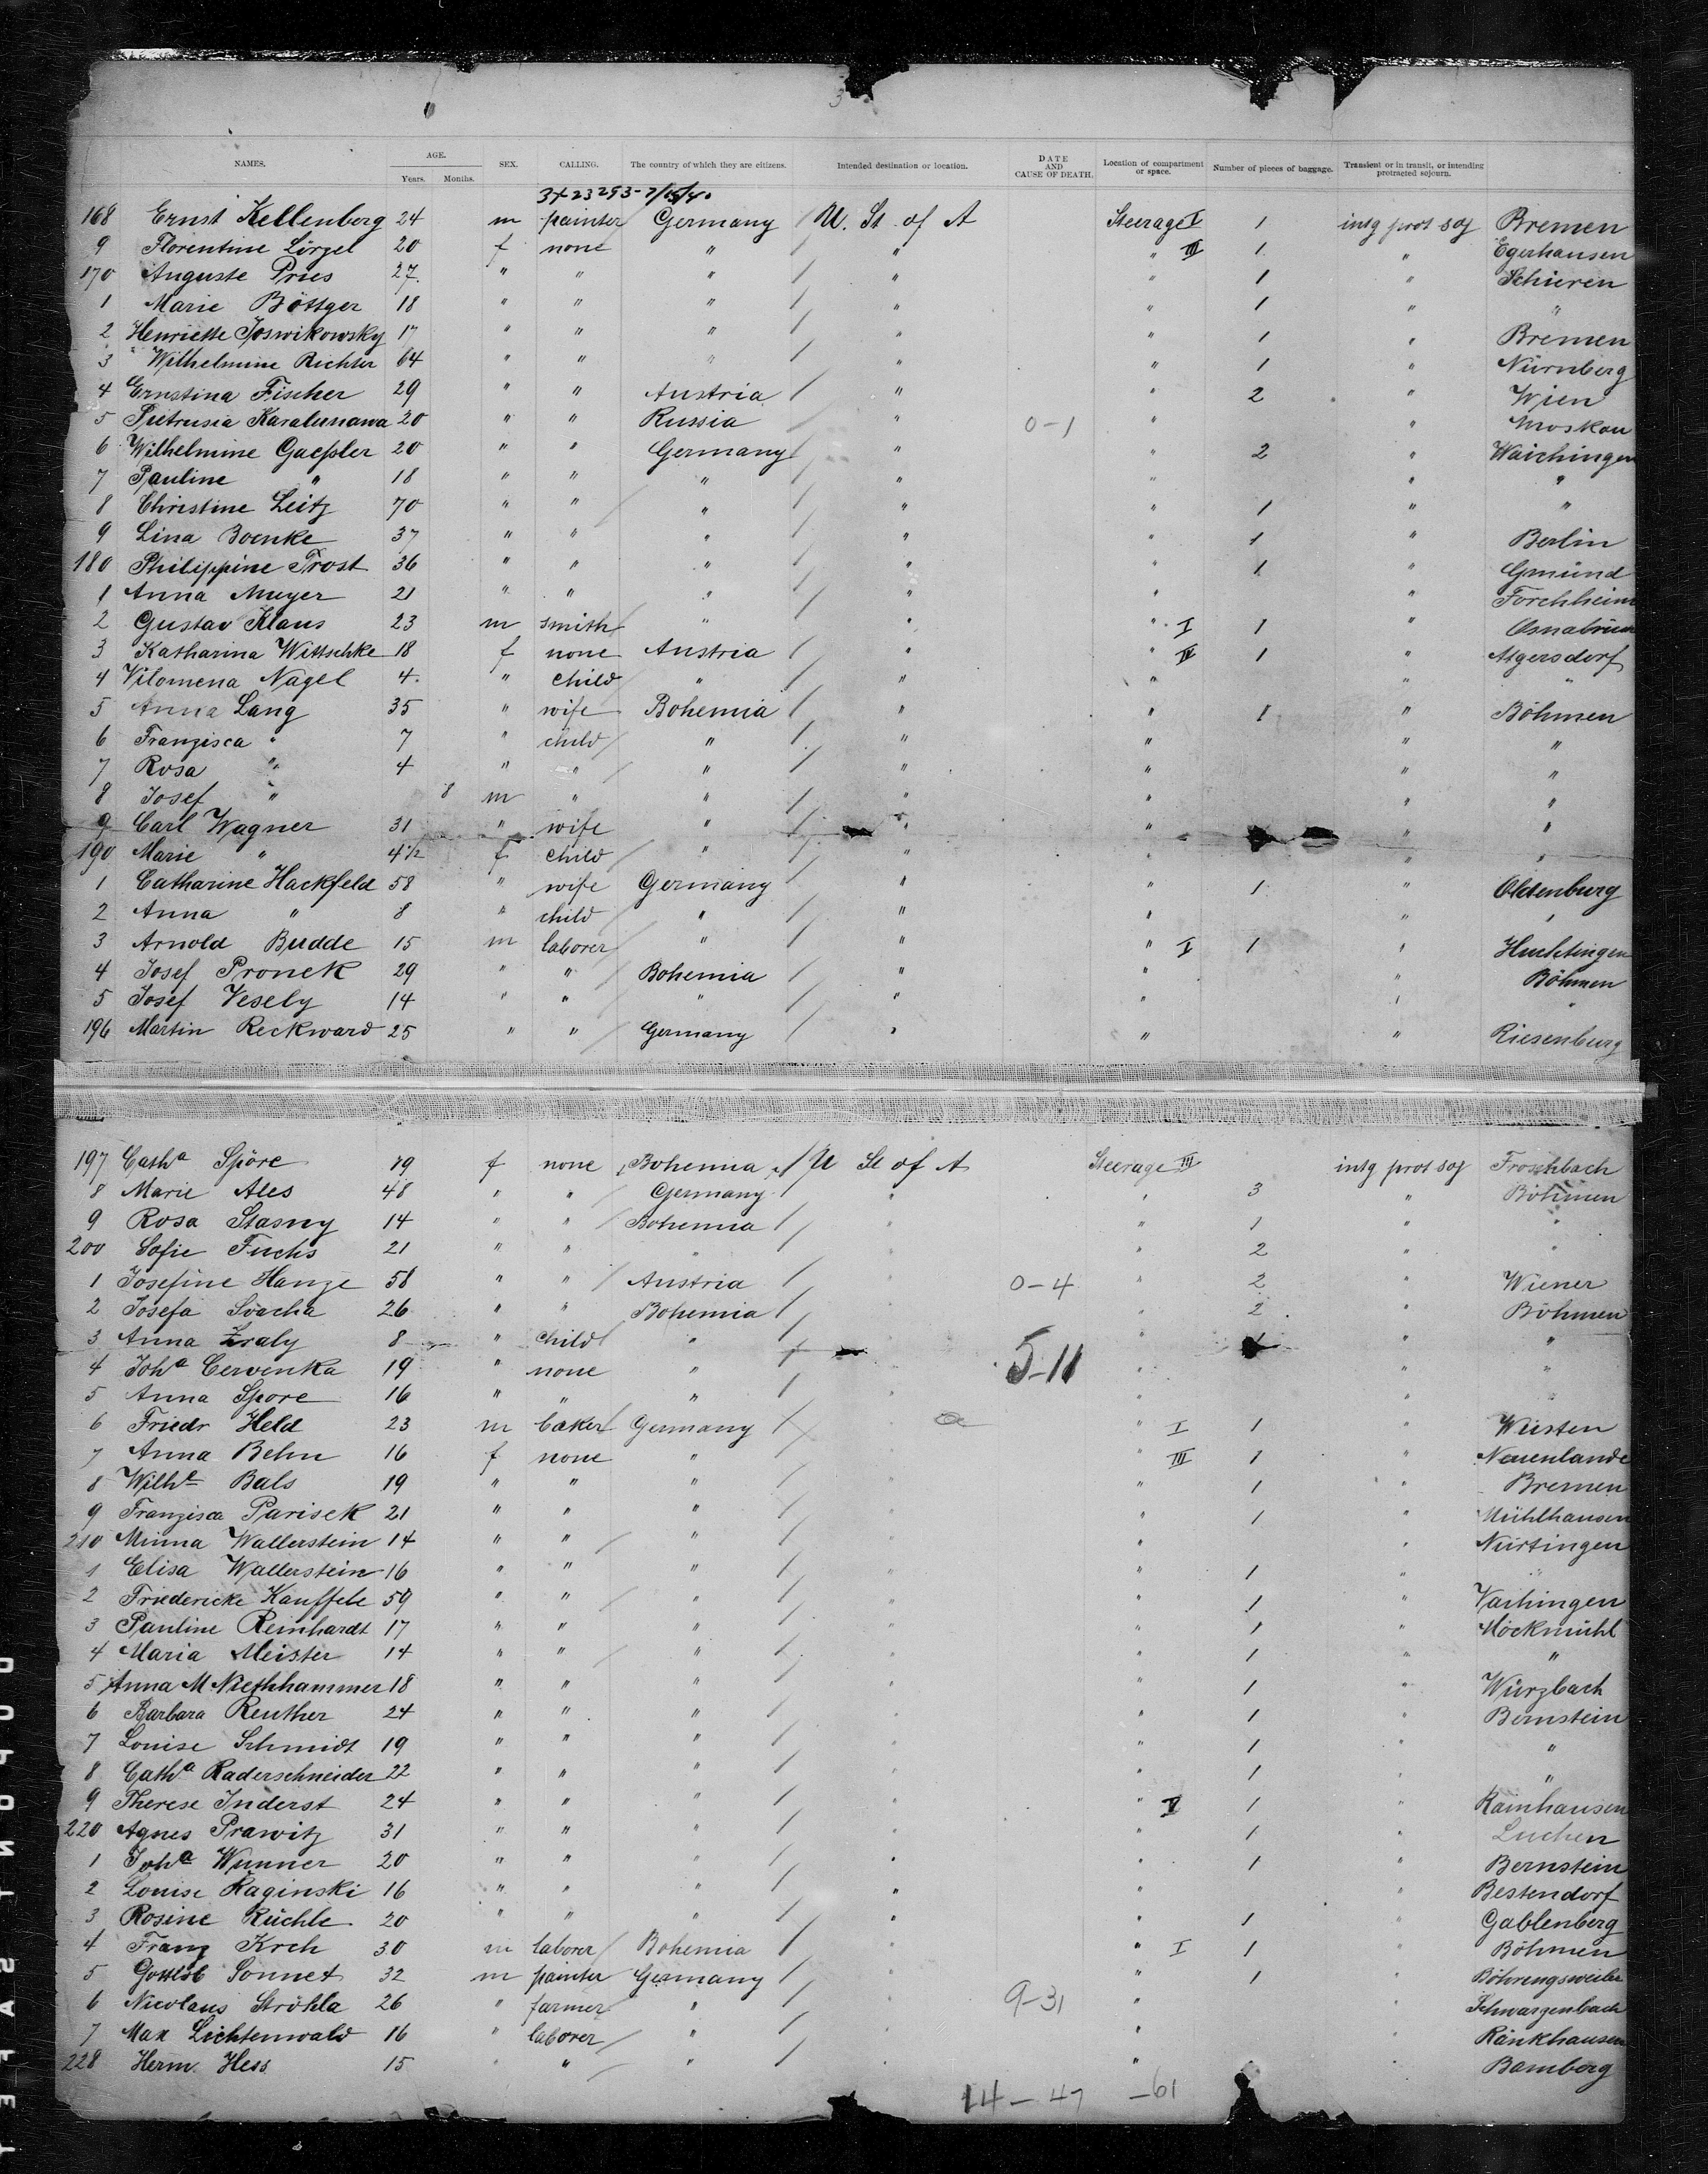 3
NAMES. AGE. Years. Months. SEX. CALLING. The country of which they are citizens. Intended destination or location. DATE AND CAUSE OF DEATH. Location of compartment or space. Number of pieces of baggage. Transient or in transit, or intending protracted sojourn.
168 Ernst Kellenberg 24 m painter Germany / U. St. of A Steerage I 1 intg prot soj Bremen
9 Florentine Lörzel 20 f none " / " " III 1 " Egerhausen
170 Auguste Pries 27 " " " / " " 1 " Schieren
1 Marie Böttger 18 " " " / " " 1 " "
2 Henriette Joswikowsky 17 " " " / " " 1 " Bremen
3 Wilhelmine Richter 64 " " " / " " 1 " Nürnberg
4 Ernstina Fischer 29 " " Austria / " " 2 " Wien
5 Karalunawa 20 " " Russia / " 0-1 " " Moskau
6 Wilhelmine Gaessler 20 " " Germany / " " 2 " Waichingen
7 Pauline " 18 " " " / " " " "
8 Christine Leitz 70 " " " / " " 1 " "
9 Lina Boenke 37 " " " / " " 1 " Berlin
180 Philippine Trost 36 " " " / " " 1 " Gmünd
1 Anna Muyer 21 " " " / " " " Forchheim
2 Gustav Klaus 23 m smith " / " " I 1 " Osnabrück
3 Katharina Wittschke 18 f none Austria / " " III 1 " Atgersdorf
4 Vilomena Nagel 4 " child " / " " " "
5 Anna Lang 35 " wife Bohemia / " " 1 " Böhmen
6 Franzisca " 7 " child " / " " " "
7 Rosa " 4 " " " / " " " "
8 Josef " 8 m " " / " " " "
9 Carl Wagner 31 " wife " / " " " "
190 Marie " 4½ f child " / " " " "
1 Catharine Hackfeld 58 " wife Germany / " " 1 " Oldenburg
2 Anna " 8 " child " / " " " "
3 Arnold Budde 15 m laborer " / " " I 1 " Huchtingen
4 Josef Pronek 29 " " Bohemia / " " " Böhmen
5 Josef Vesely 14 " " " / " " " "
196 Martin Reckward 25 " " Germany / " " " Riesenburg
197 Catha Spöre 19 f none Bohemia / U St of A Steerage III intg prot soj Froschbach
8 Marie Ales 48 " " Germany / " " 3 " Böhmen
9 Rosa Stasny 14 " " Bohemia / " " 1 " "
200 Sofie Fuchs 21 " " " / " " 2 " "
1 Josefine Hanze 58 " " Austria / " 0-4 " 2 " Wiener
2 Josefa Svacha 26 " " Bohemia / " " 2 " Böhmen
3 Anna Zraly 8 " child " / " " 1 " "
4 Joha Cervenka 19 " none " / " 5-11 " " "
5 Anna Spore 16 " " " / " " " "
6 Friedr Held 23 m baker Germany / " I 1 " Wüsten
7 Anna Behn 16 f none " " " III 1 " Neuenlande
8 Wilhe Bals 19 " " " / " " 1 " Bremen
9 Franzisca Parisek 21 " " " / " " 1 " Mühlhausen
210 Minna Wallerstein 14 " " " / " " " Nürtingen
1 Elisa Wallerstein 16 " " " / " " 1 " "
2 Friedericke Kauffele 59 " " " / " " 1 " Vaihingen
3 Pauline Reinhardt 17 " " " / " " 1 " Möckmühl
4 Maria Meister 14 " " " / " " 1 " "
5 Anna M Niethhammer 18 " " " / " " 1 " Würzbach
6 Barbara Reuther 24 " " " / " " 1 " Bernstein
7 Louise Schmidt 19 " " " / " " 1 " "
8 Catha Raderschneider 22 " " " / " " 1 " "
9 Therese Inderst 24 " " " / " " 1 " Rainhausen
220 Agnes Prawitz 31 " " " / " " 1 " Luchen
1 Joha Wunner 20 " " " / " " 1 " Bernstein
2 Louise Raginski 16 " " " / " " " Bestendorf
3 Rosine Küchle 20 " " " / " " 1 " Gablenberg
4 Franz Krch 30 m laborer Bohemia / " " I 1 " Böhmen
5 Gottlob Sonnet 32 m painter Germany / " " 1 " Böhringsweiler
6 Nicolaus Ströhla 26 " farmer " / " 9-31 " " Schwarzenbach
7 Max Lichtenwald 16 " laborer " / " " " Ränkhausen
228 Herm. Hess 15 " " " / " " Bamberg
14 - 47 - 61